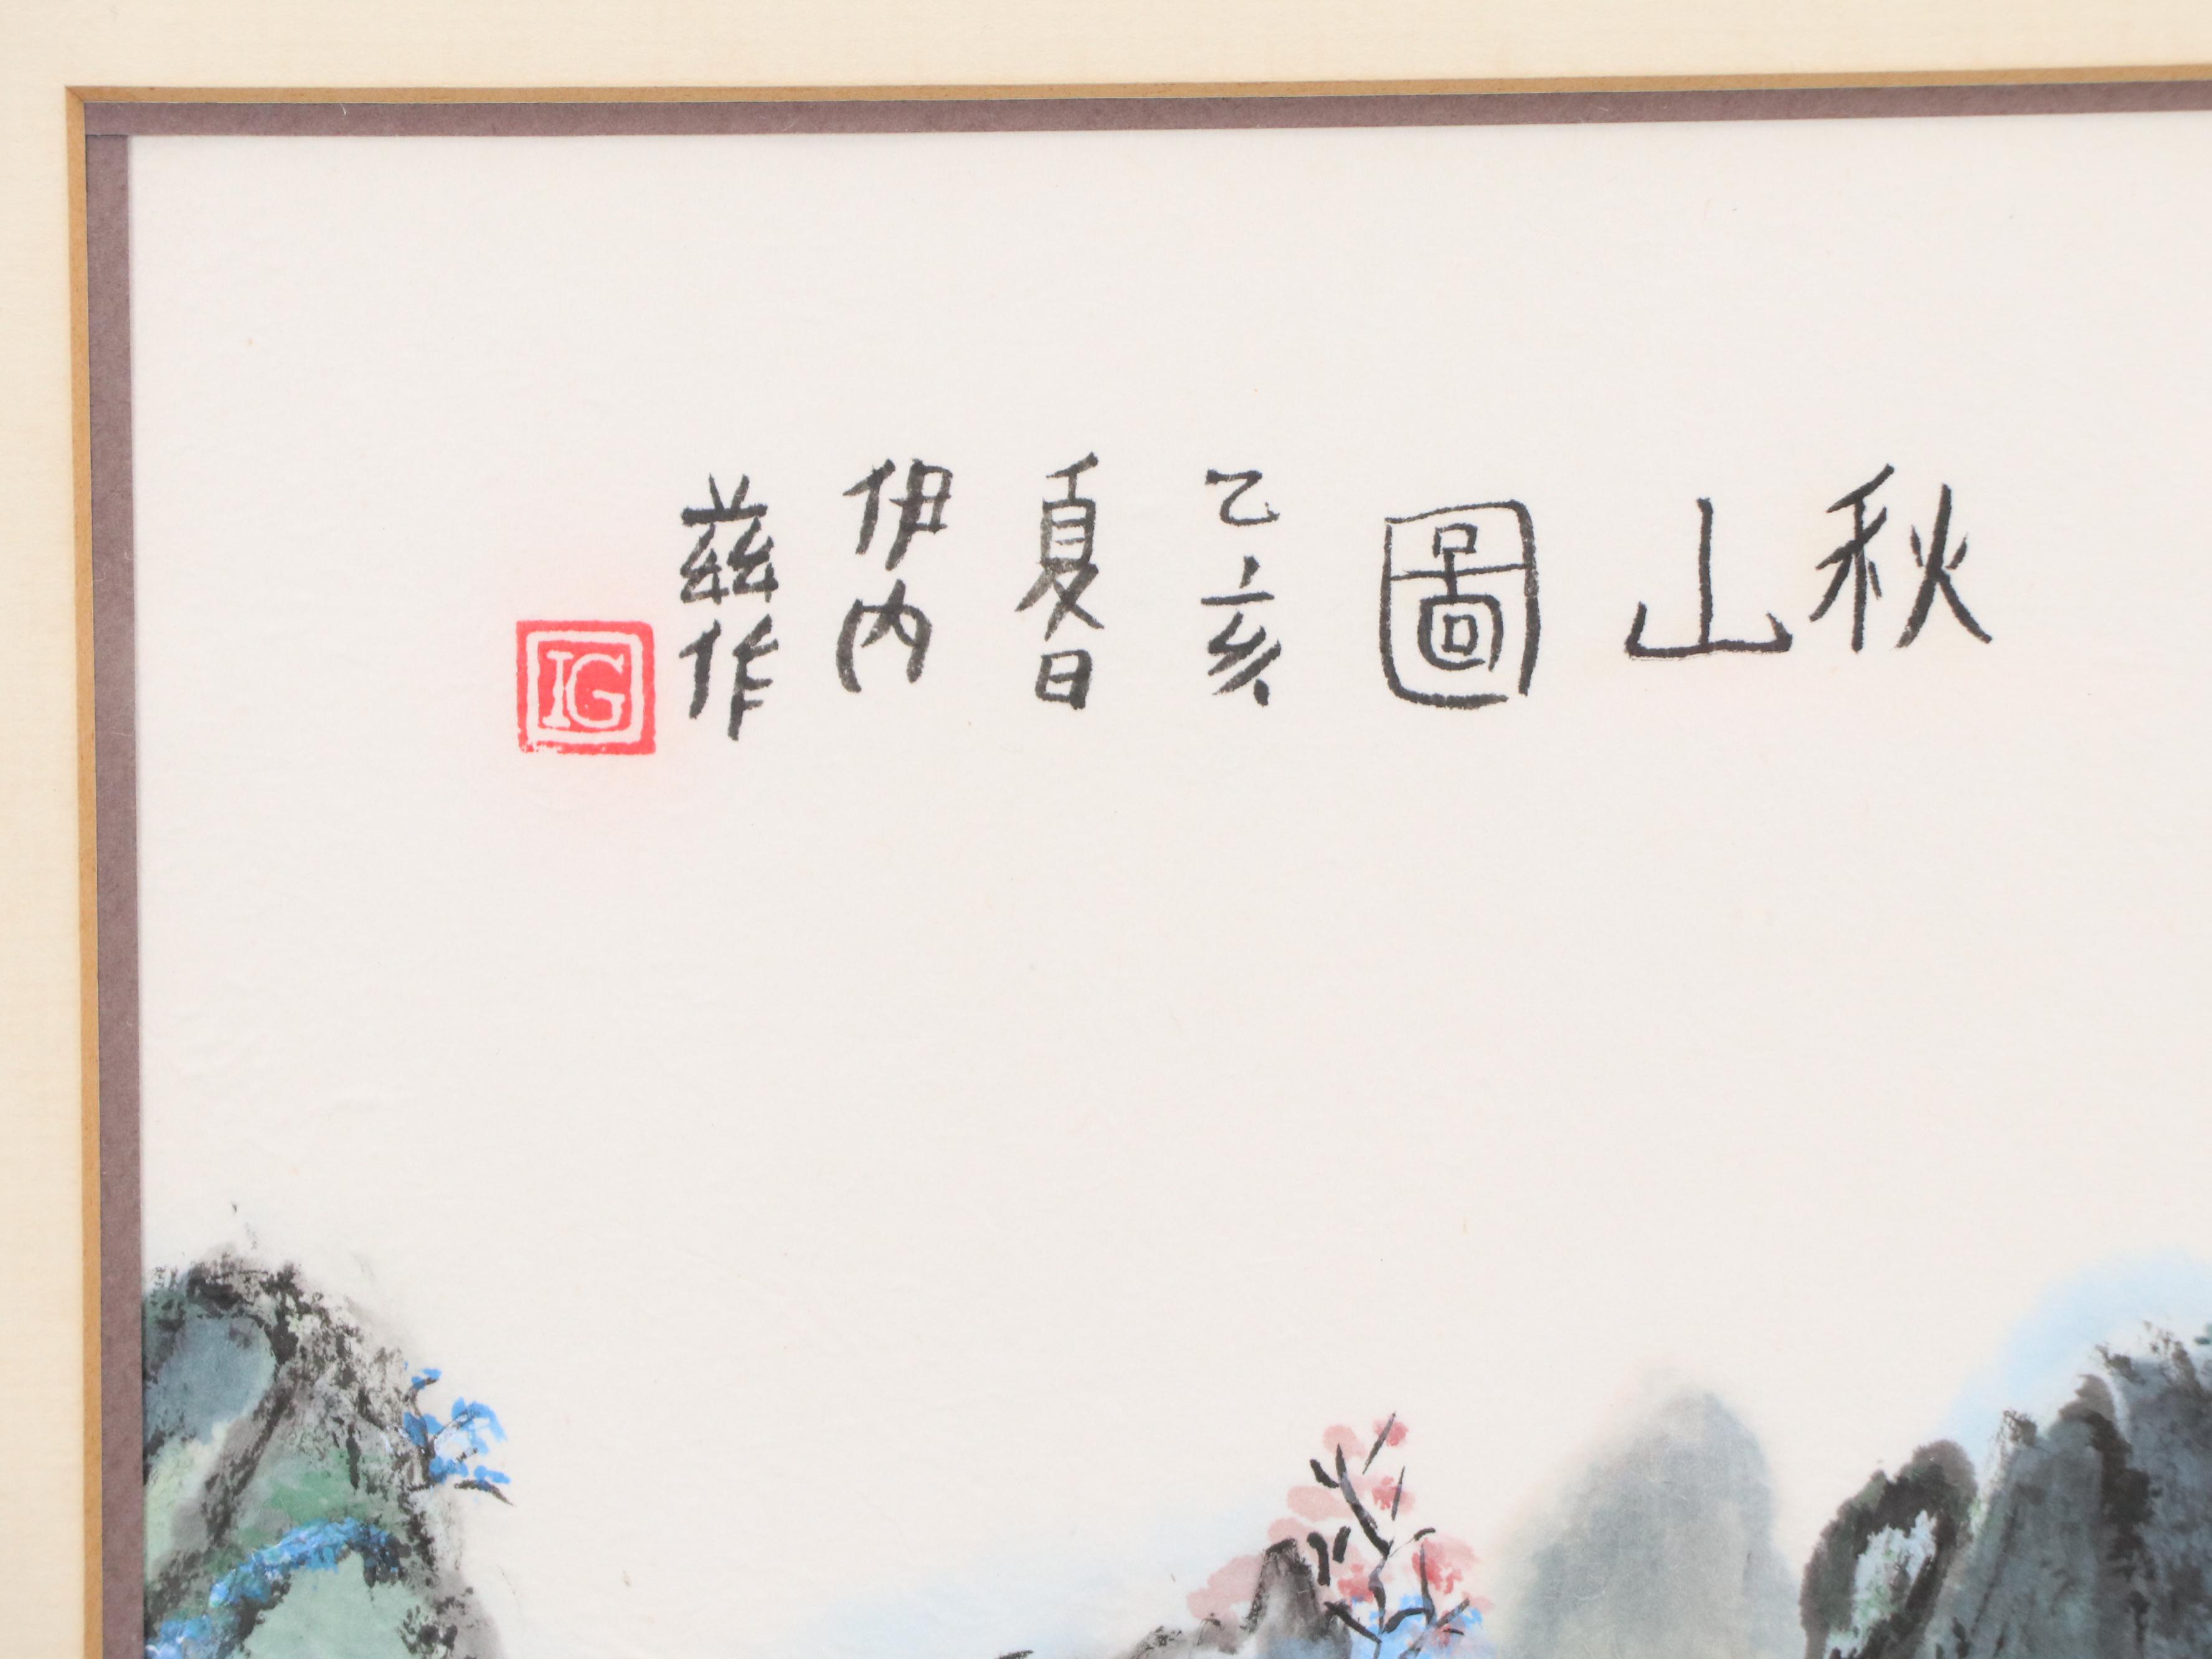 秋山圖
乙亥
夏日
伊内
茲作
IG